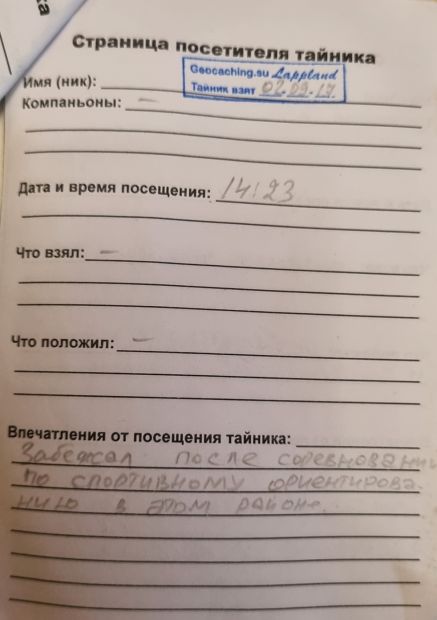 ка
Страница посетителя тайника
Geocaching.su Lappland
Имя (ник):
Тайник взят 02.09.17.
Компаньоны: —
Дата и время посещения: 14:23
Что взял: —
Что положил: —
Впечатления от посещения тайника:
Забежал после соревнований
по спортивному ориентирова-
нию в этом районе.